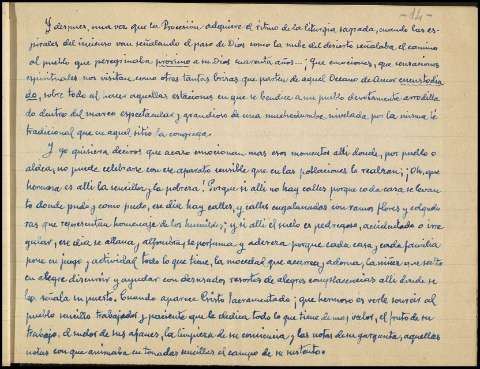 -14-
Y despues, una vez que la Procesión adquiere el ritmo de la liturgia sagrada, cuando las es-
pirales del incienso van señalando el paso de Dios como la nube del desierto señalaba el camino
al pueblo que peregrinaba proximo a su Dios cuarenta años... ¡Que emociones, que sensaciones
espirituales nos visitan, como otras tantas brisas que parten de aquel Oceano de Amor encustodia
do, sobre todo al hacer aquellas estaciones en que se bendice a un pueblo devotamente arrodilla
do dentro del marco espectacular y grandioso de una muchedumbre nivelada por la misma fé
tradicional que en aquel sitio la congrega.
Y yo quisiera deciros que acaso emocionan mas esos momentos alli donde, por pueblo o
aldea, no puede celebrarse con ese aparato sensible que en las poblaciones lo realzan; ¡Oh, que
hermosa es alli la sencillez, la pobreza! Porque si alli no hay calles porque cada casa se levan
ta donde pudo y como pudo, ese dia hay calles, y calles engalanadas con ramos flores y colgadu
ras que representan homenaje de los humildes; y si alli el suelo es pedregoso, accidentado o irre
gular, ese dia se allana, alfombra, se perfuma y adereza porque cada casa, cada familia
pone en juego y actividad todo lo que tiene, la mocedad que acarrea y adorna, la niñez que salta
en alegre discurrir y ayudar con desusados resortes de alegres complacencias alli donde se
les señala su puesto. Cuando aparece Cristo Sacramentado; que hermoso es verle sonreir al
pueblo sencillo trabajador y paciente que le dedica todo lo que tiene de mas valor, el fruto de su
trabajo, el sudor de sus afanes, la limpieza de su conciencia, y las notas de su garganta, aquellas
notas con que animaba en tonadas sencillas el campo de su sustento.